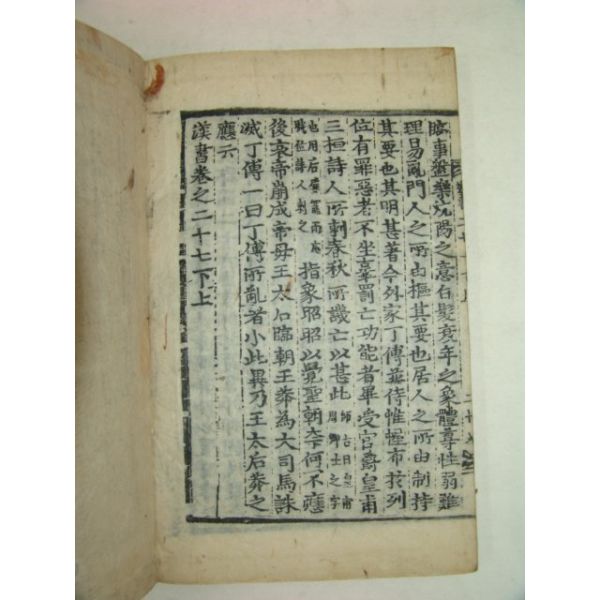 臨事盤樂炕陽之意白髮衰年之象體尊性弱難
理易亂門人之所由樞其要也居人之所由制持
其要也其明甚著今外家丁傅並侍帷幄布於列
位有罪惡者不坐辜罰亡功能者畢受官爵皇甫
三桓詩人所刺春秋所譏亡以甚此師古曰皇甫周卿士之字
也用后嬖寵而處職位詩人刺之指象昭昭以覺聖朝奈何不應
後哀帝崩成帝母王太后臨朝王莽為大司馬誅
滅丁傅一曰丁傅所亂者小此異乃王太后莽之
應云
漢書卷之二十七下上